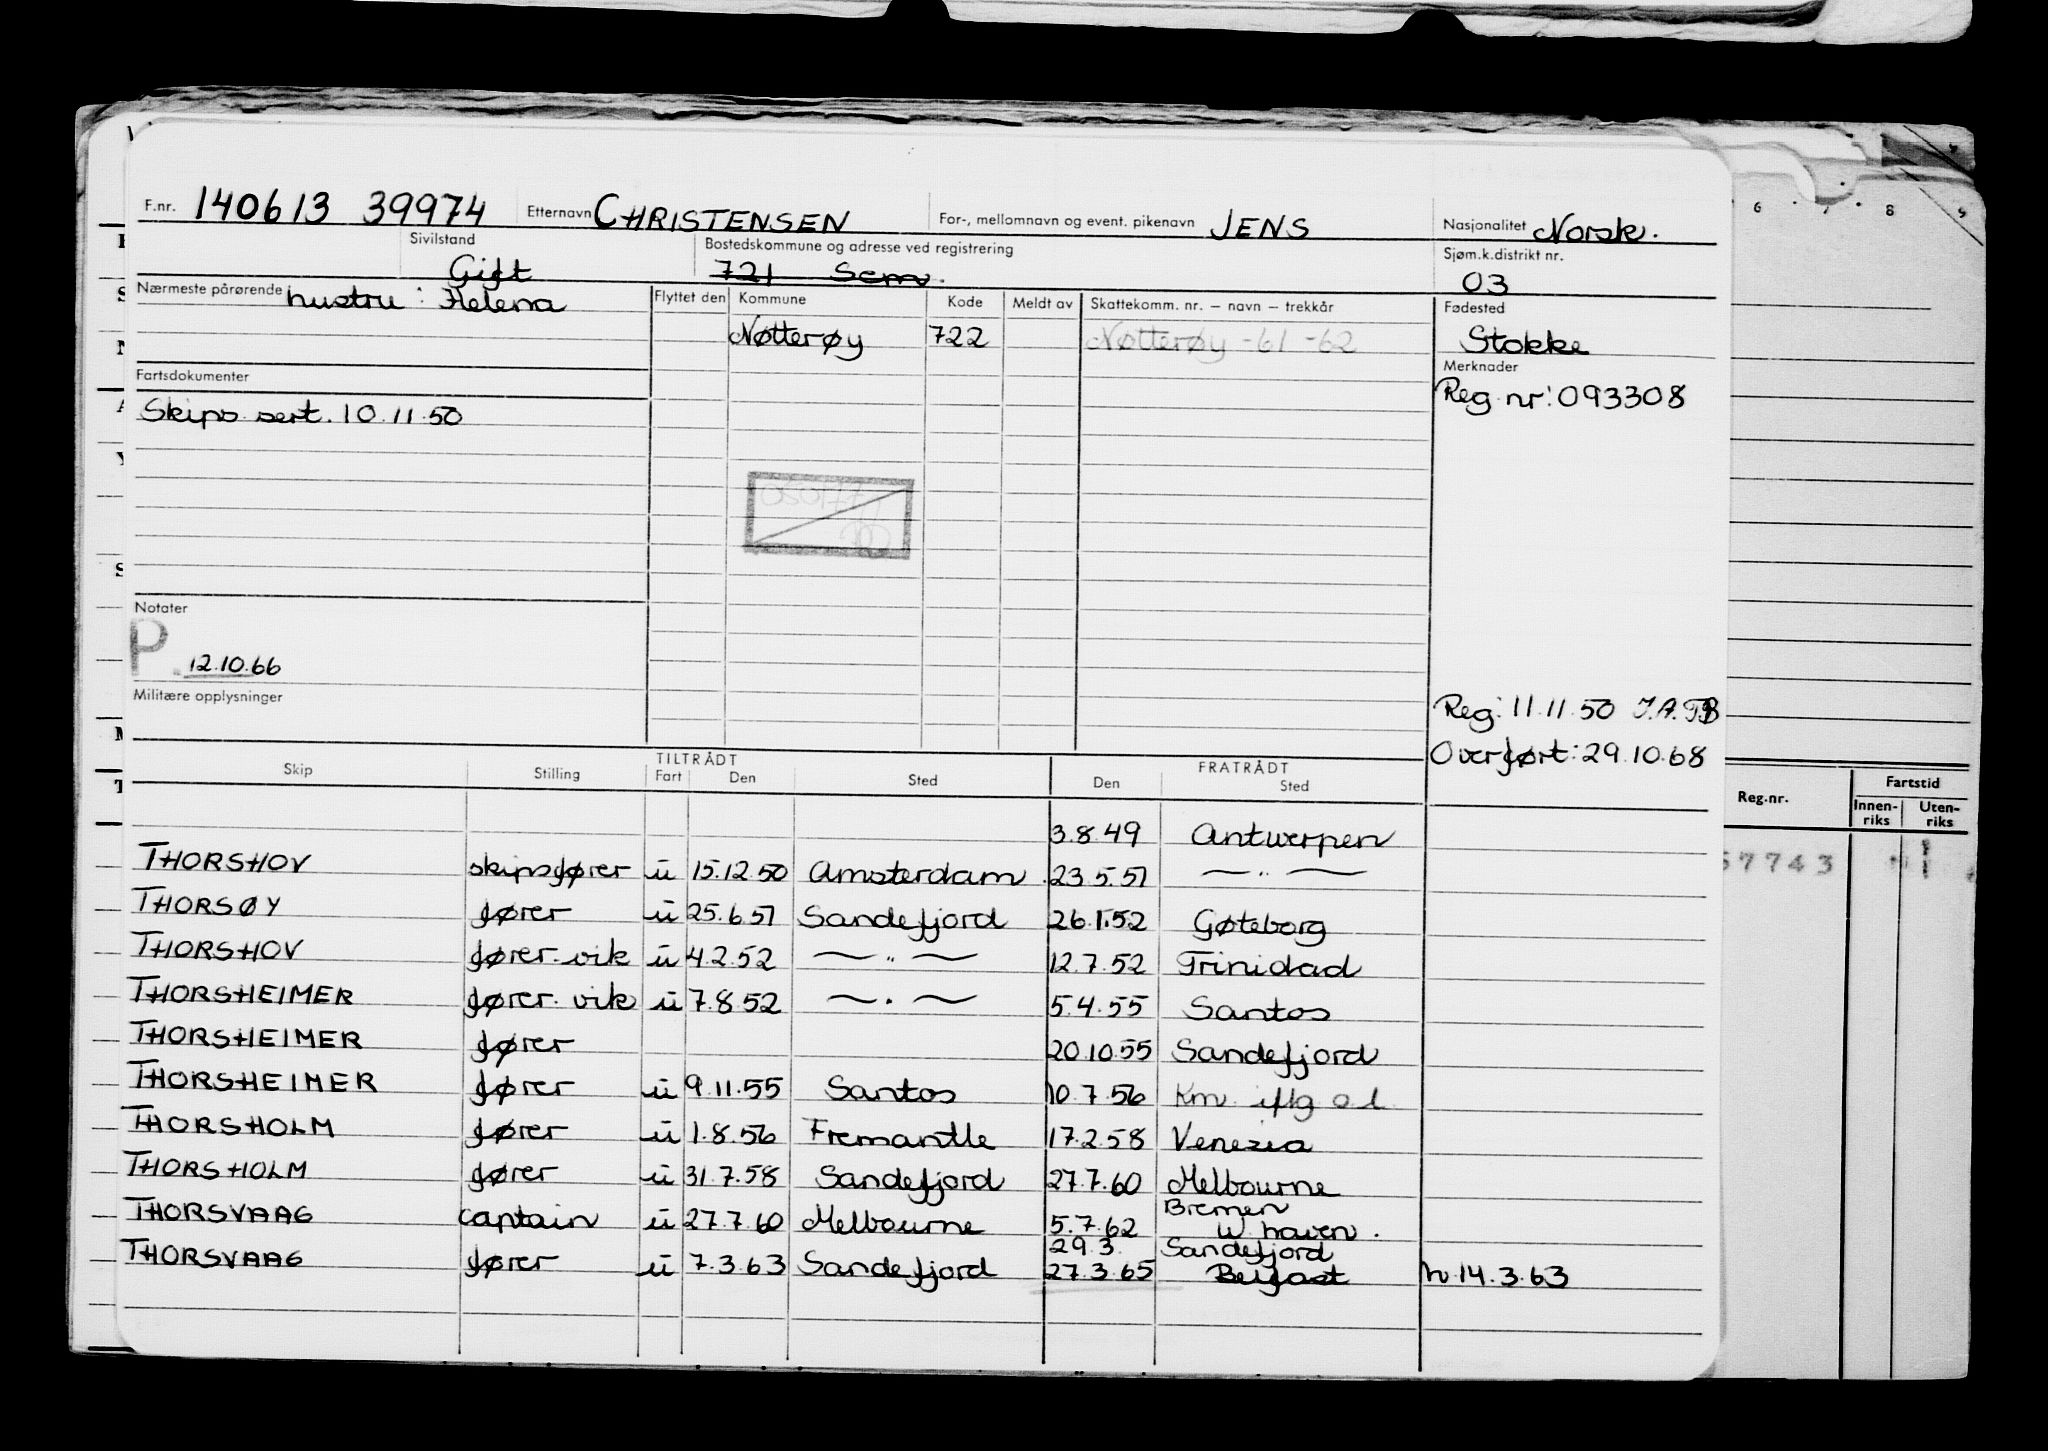 F.nr. 140613 39974 Etternavn CHRISTENSEN For-, mellomnavn og event. pikenavn JENS Nasjonalitet Norsk.
Sivilstand Gift
Bostedskommune og adresse ved registrering
721 Sem.
Sjøm.k.distrikt nr.
03
Nærmeste pårørende hustru: Helena
Flyttet den Kommune Kode Meldt av Skattekomm. nr. – navn – trekkår
Nøtterøy 722 Nøtterøy -61 -62
Fødested
Stokke
Merknader
Reg. nr: 093308
Fartsdokumenter
Skips sert. 10.11.50
Notater
P. 12.10.66
Militære opplysninger
Reg: 11.11.50
Overført: 29.10.68
TILTRÅDT FRATRÅDT
Skip Stilling Fart Den Sted Den Sted
3.8.49 Antwerpen
THORSHOV skipsfører u 15.12.50 Amsterdam 23.5.51 — " —
THORSØY fører u 25.6.51 Sandefjord 26.1.52 Gøteborg
THORSHOV fører-vik u 4.2.52 — " — 12.7.52 Trinidad
THORSHEIMER fører-vik u 7.8.52 — " — 5.4.55 Santos
THORSHEIMER fører 20.10.55 Sandefjord
THORSHEIMER fører u 9.11.55 Santos 10.7.56 Km iflg o.l.
THORSHOLM fører u 1.8.56 Fremantle 17.2.58 Venezia
THORSHOLM fører u 31.7.58 Sandefjord 27.7.60 Melbourne
THORSVAAG captain u 27.7.60 Melbourne 5.7.62 Bremen
W.haven.
29.3. Sandefjord
THORSVAAG fører u 7.3.63 Sandefjord 27.3.65 Belfast h 14.3.63
6 7 8
Reg.nr. Fartstid
Innen-riks Uten-riks
57743